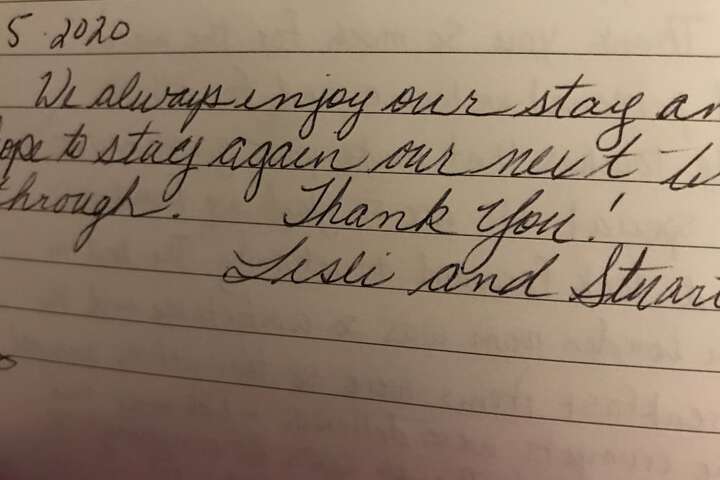 5 2020
We always enjoy our stay an
ope to stay again our next t
through. Thank You!
Lisli and Stuar